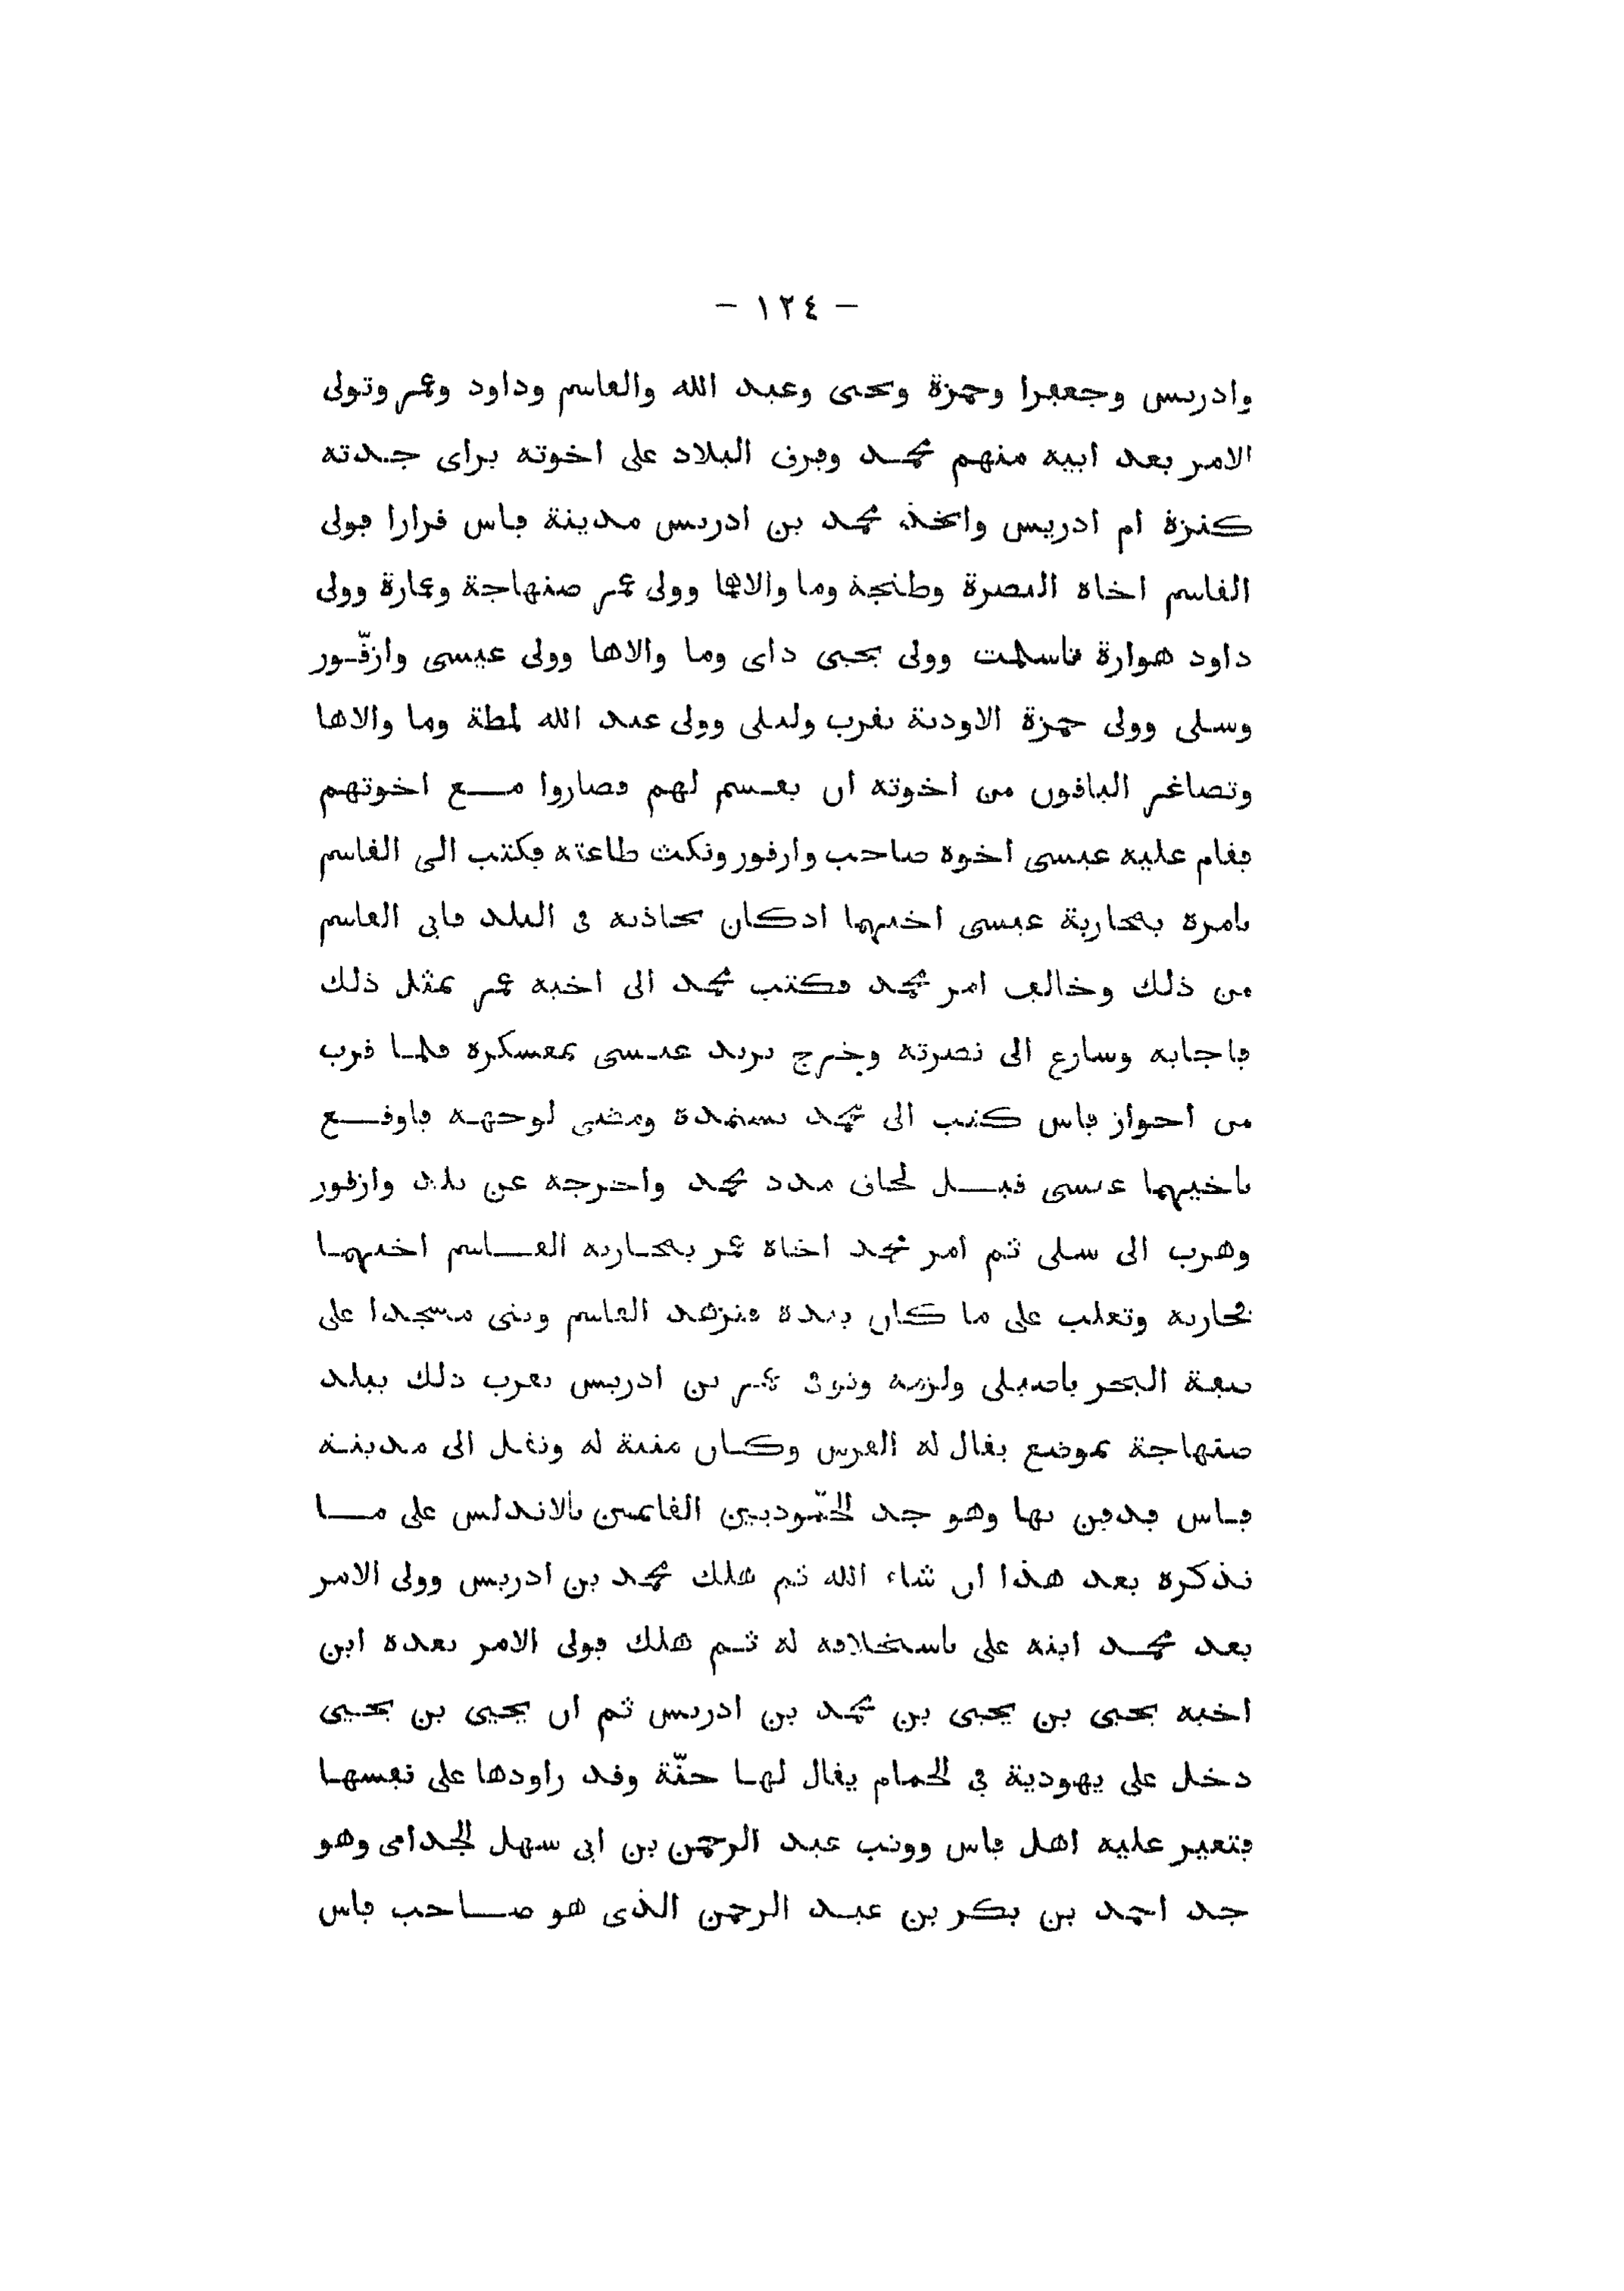 – ١٢٤ –
وادريس وجعفرا وحمزة ويحيى وعبد الله والقاسم وداود وعمر وتولى
الامر بعد ابيه منهم محمد وفرق البلاد على اخوته براى جدته
كنزة ام ادريس واتخذ محمد بن ادريس مدينة فاس قرارا فولى
القاسم اخاه البصرة وطنجة وما والاها وولى عمر صنهاجة وغمارة وولى
داود هوارة تاسلمت وولى يحيى داى وما والاها وولى عيسى وازقّور
وسلى وولى حمزة الاودية بقرب وليلى وولى عبد الله لمطة وما والاها
وتصاغر الباقون من اخوته ان يقسم لهم فصاروا مع اخوتهم
فقام عليه عيسى اخوه صاحب وازقور ونكث طاعته فكتب الى القاسم
يامره بمحاربة عيسى اخيهما اذ كان يحاذيه فى البلد فابى القاسم
من ذلك وخالف امر محمد فكتب محمد الى اخيه عمر بمثل ذلك
فاجابه وسارع الى نصرته وخرج يريد عيسى بمعسكره فلما قرب
من احواز فاس كتب الى محمد يستمده ومضى لوجهه فاوقع
باخيهما عيسى قبل لحاق مدد محمد واخرجه عن بلد وازقور
وهرب الى سلى ثم امر محمد اخاه عمر بمحاربة القاسم اخيهما
فحاربه وتغلب على ما كان بيده فتزهد القاسم وبنى مسجدا على
ضفة البحر باصيلى ولزمه وتوفى عمر بن ادريس بقرب ذلك ببلد
صنهاجة بموضع يقال له الفرس وكان منية له ونقل الى مدينة
فاس فدفن بها وهو جد الحمّوديين القائمين بالاندلس على ما
نذكره بعد هذا ان شاء الله ثم هلك محمد بن ادريس وولى الامر
بعد محمد ابنه على باستخلافه له ثم هلك فولى الامر بعده ابن
اخيه يحيى بن يحيى بن محمد بن ادريس ثم ان يحيى بن يحيى
دخل على يهودية فى الحمام يقال لها حنّة وقد راودها على نفسها
فتغير عليه اهل فاس ووثب عبد الرحمن بن ابى سهل الجذامى وهو
جد احمد بن بكر بن عبد الرحمن الذى هو صاحب فاس